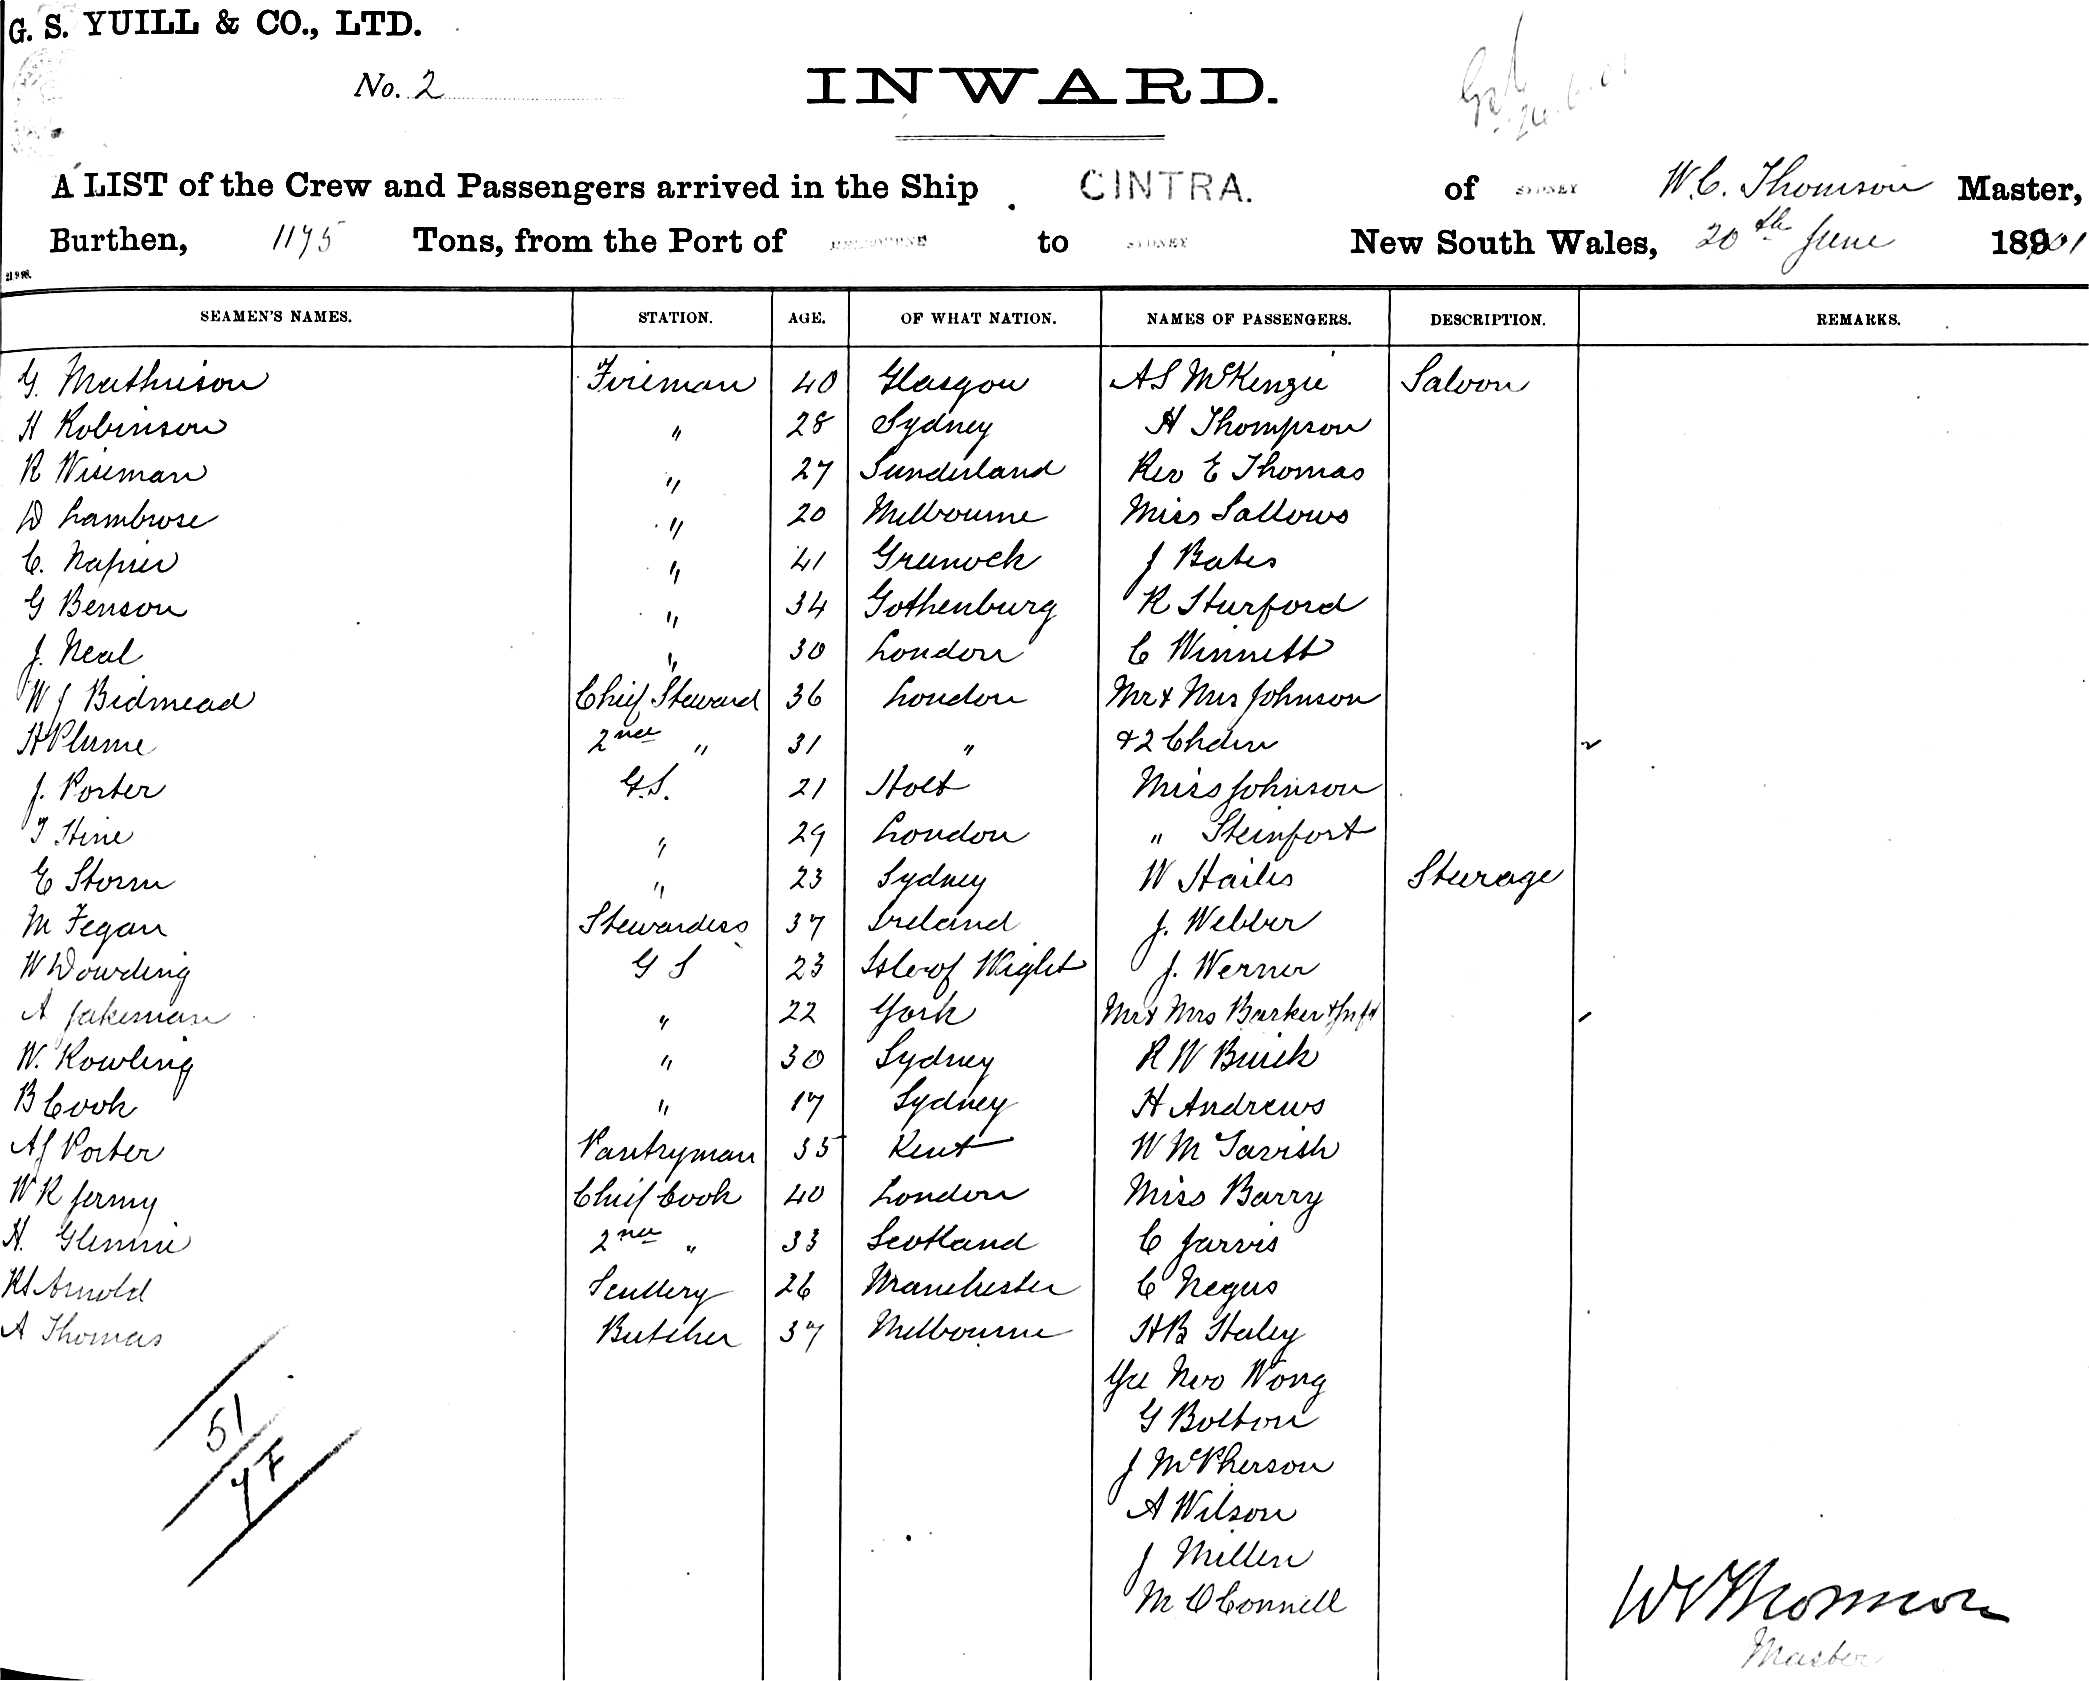 G. S. YUILL & CO., LTD.
No. 2
INWARD.
A LIST of the Crew and Passengers arrived in the Ship CINTRA. of SYDNEY W.C. Thomson Master,
Burthen, 1195 Tons, from the Port of MELBOURNE to SYDNEY New South Wales, 20th June 1901
21998.
SEAMEN'S NAMES. STATION. AGE. OF WHAT NATION. NAMES OF PASSENGERS. DESCRIPTION. REMARKS.
G. Mathieson Fireman 40 Glasgow A S McKenzie Saloon
H Robinson " 28 Sydney H Thompson
R Wiseman " 27 Sunderland Rev E Thomas
D Lambrose " 20 Melbourne Miss Sallows
C. Napier " 41 Greenock J Bates
G Benson " 34 Gothenburg R Sturford
J. Neal " 30 London C Winnett
W J Bidmead Chief Steward 36 London Mr & Mrs Johnson
H Plume 2nd " 31 " & 2 Chdrn
J. Porter G.S. 21 Holt Miss Johnson
T Hine " 29 London " Steinfort
E Storm " 23 Sydney W Hailes Steerage
M Fegan Stewardess 37 Ireland J. Webber
W Dowding G S 23 Isle of Wight J. Werner
A Jakeman " 22 York Mr & Mrs Barker & Inft
W. Rowling " 30 Sydney R W Buick
B Cook " 17 Sydney H Andrews
A J Porter Pantryman 35 Kent W McTavish
W R Jermy Chief Cook 40 London Miss Barry
H. Glennie 2nd " 33 Scotland C Jarvis
Arnold Scullery 26 Manchester C Negus
A Thomas Butcher 37 Melbourne H B Staley
Yee Noo Wong
G Bolton
J McPherson
A Wilson
J Millen
M O Connell
51
WCThomson
Master